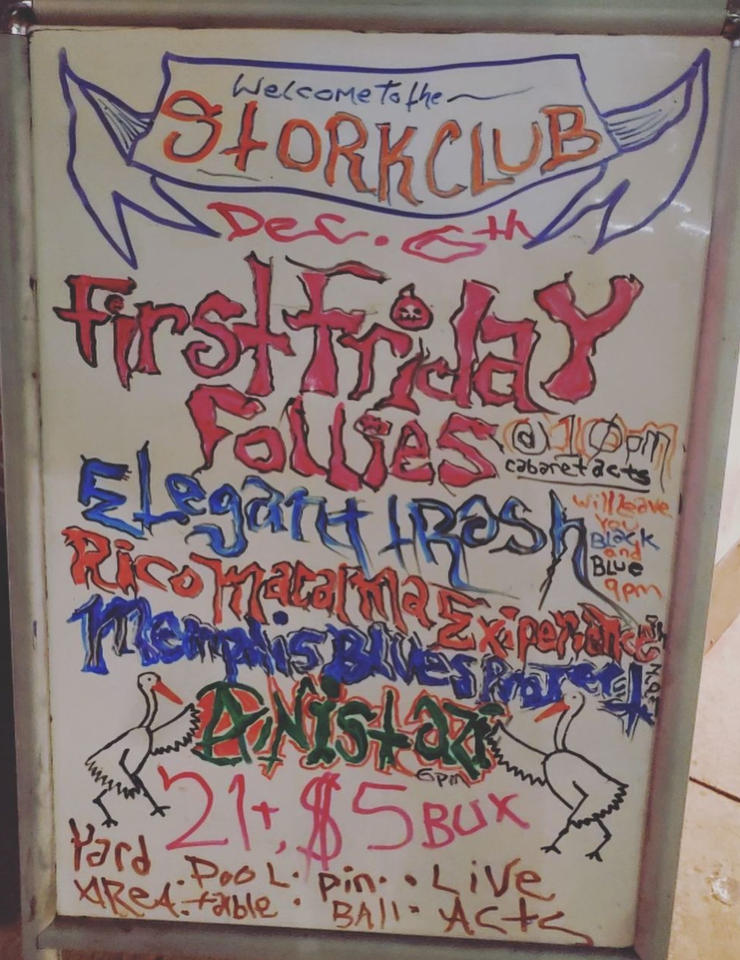 Welcome to the
STORK CLUB
Dec. 6th
First Friday
Follies @ 10pm
cabaret acts
Elegant tRash
will leave
you
Black
and
BLUE
9pm
Rico Macalma Experience
Memphis Blues Project
ANistazi
6pm
21+, $5 BUX
Yard AREA. Pool table. pin BALL. Live Acts